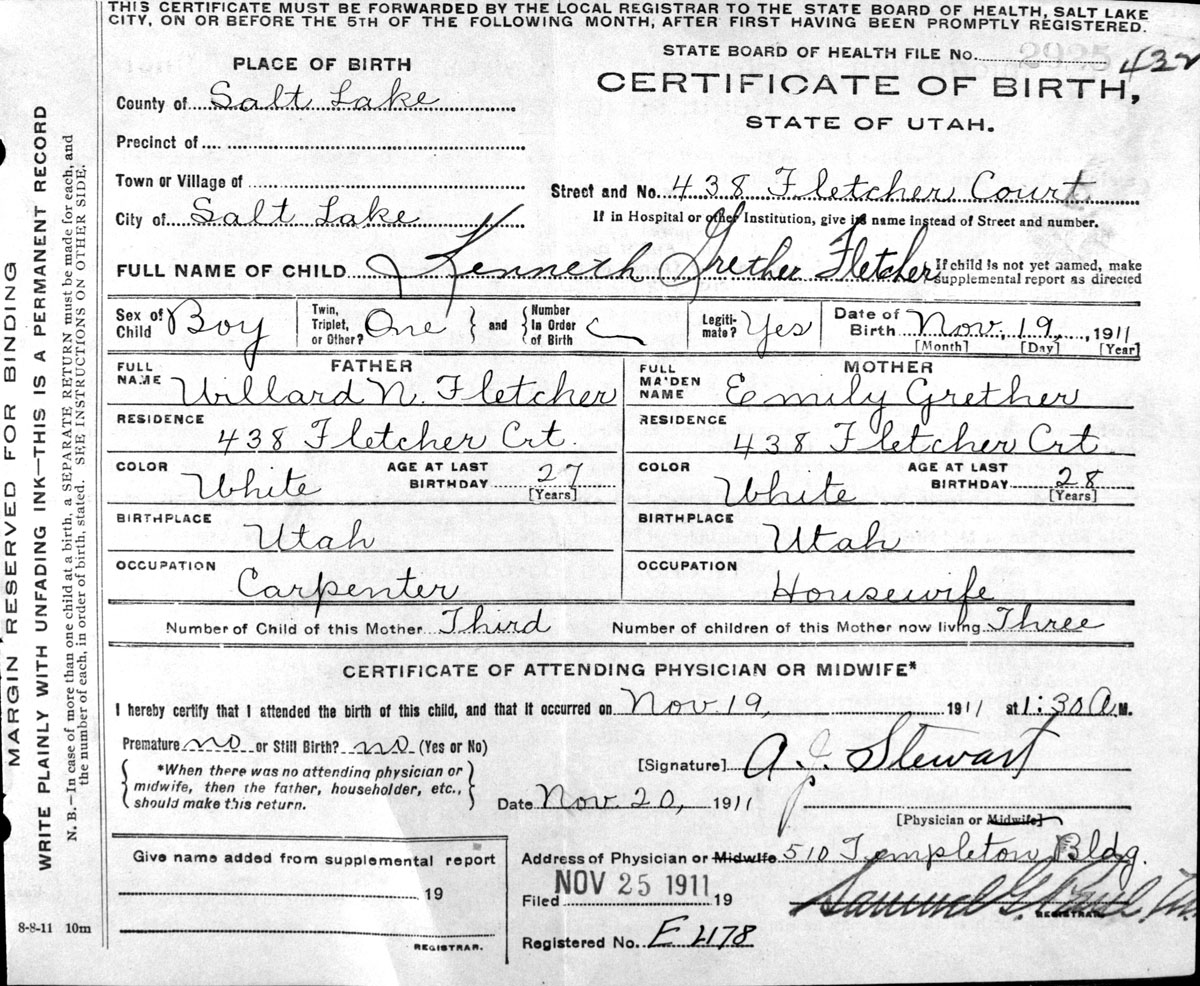 THIS CERTIFICATE MUST BE FORWARDED BY THE LOCAL REGISTRAR TO THE STATE BOARD OF HEALTH, SALT LAKE
CITY, ON OR BEFORE THE 5TH OF THE FOLLOWING MONTH, AFTER FIRST HAVING BEEN PROMPTLY REGISTERED.
MARGIN RESERVED FOR BINDING
WRITE PLAINLY WITH UNFADING INK—THIS IS A PERMANENT RECORD
N. B.—In case of more than one child at a birth, a SEPARATE RETURN must be made for each, and
the number of each, in order of birth, stated. SEE INSTRUCTIONS ON OTHER SIDE.
STATE BOARD OF HEALTH FILE No. 432
CERTIFICATE OF BIRTH,
STATE OF UTAH.
PLACE OF BIRTH
County of Salt Lake
Precinct of
Town or Village of
City of Salt Lake
Street and No. 438 Fletcher Court
If in Hospital or other Institution, give its name instead of Street and number.
FULL NAME OF CHILD Kenneth Grether Fletcher
If child is not yet named, make
supplemental report as directed
Sex of Child Boy
Twin, Triplet, or Other? One
and Number In Order of Birth
Legiti-mate? Yes
Date of Birth Nov. 19, 1911
[Month] [Day] [Year]
FATHER
FULL NAME Willard N. Fletcher
RESIDENCE 438 Fletcher Crt.
COLOR White
AGE AT LAST BIRTHDAY 27
[Years]
BIRTHPLACE Utah
OCCUPATION Carpenter
MOTHER
FULL MAIDEN NAME Emily Grether
RESIDENCE 438 Fletcher Crt.
COLOR White
AGE AT LAST BIRTHDAY 28
[Years]
BIRTHPLACE Utah
OCCUPATION Housewife
Number of Child of this Mother Third
Number of children of this Mother now living Three
CERTIFICATE OF ATTENDING PHYSICIAN OR MIDWIFE*
I hereby certify that I attended the birth of this child, and that it occurred on Nov. 19, 1911 at 1:30 A.M.
Premature no or Still Birth? no (Yes or No)
*When there was no attending physician or
midwife, then the father, householder, etc.,
should make this return.
[Signature] A J Stewart
Date Nov. 20, 1911
[Physician or Midwife]
Give name added from supplemental report
19
REGISTRAR.
Address of Physician or Midwife 510 Templeton Bldg.
Filed NOV 25 1911 19
Samuel G. Paul
REGISTRAR.
Registered No. E 4178
8-8-11 10m